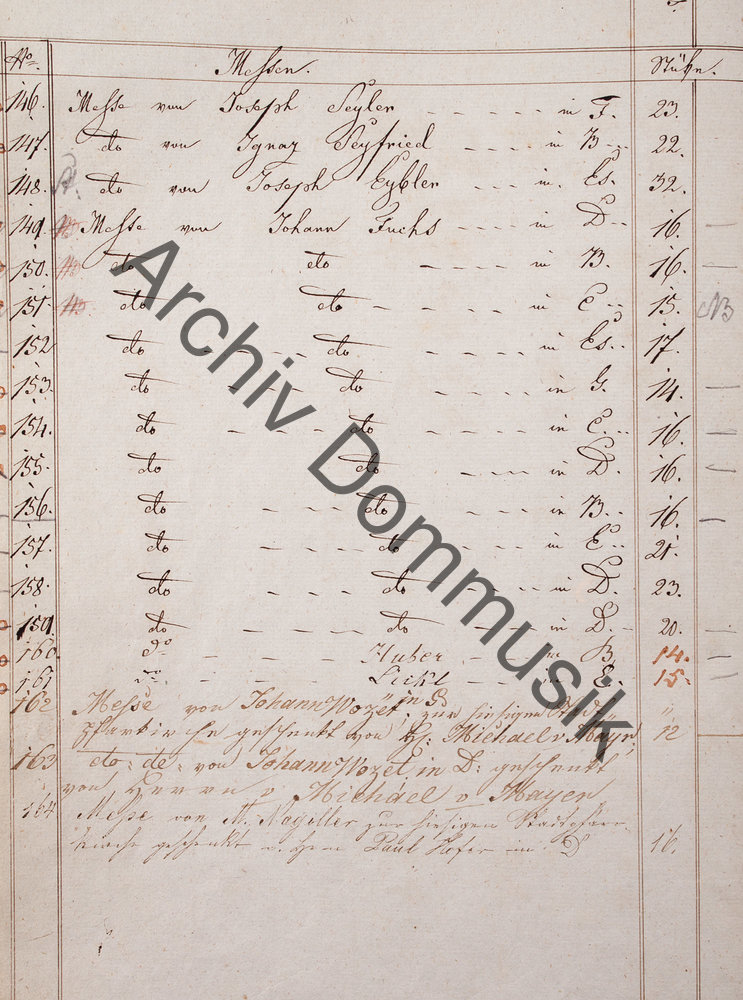 No. Messen. Stüke.
146. Messe von Joseph Seyler - - - - in F. 23.
147. do von Ignaz Seyfried - - - - in B - - 22.
148. A. do von Joseph Eybler - - - in Es. 32.
149. Messe von Johann Fuchs - - - - in D - - 16.
150. do do - - - - in B. 16.
151. do do - - - - - in C - - 15. NB
152 do - - - - do. - - - - - in Es. - - 17.
153. do - - - - do - - - - in G. 14.
154. do - - - - do - - - - in C. - - 16.
155. do do - - - - in D. 16.
156. do - - - - do - - - - in B - - 16.
157. do - - - - do - - - - in E - - 21.
158. do - - - - do - - - - in D. 23.
159. do - - - - do - - - - in D. - 20.
160. do - - - - Huber - - - in B. 14.
161 do - - - - Lickl - - - in C. 15.
162 Messe von Johann Wozet, in G zur hiesigen Stadt
pfarrkirche geschenkt von H: Michael v Mayr, 12
163 do: de: von Johann Wozet, in D: geschenkt
von Herrn v. Michael v Mayer
164 Messe von M. Nagiller zur hiesigen Stadtpfarr-
kirche geschenkt v. Hrn Paul Hofer in D 16.
Archiv Dommusik